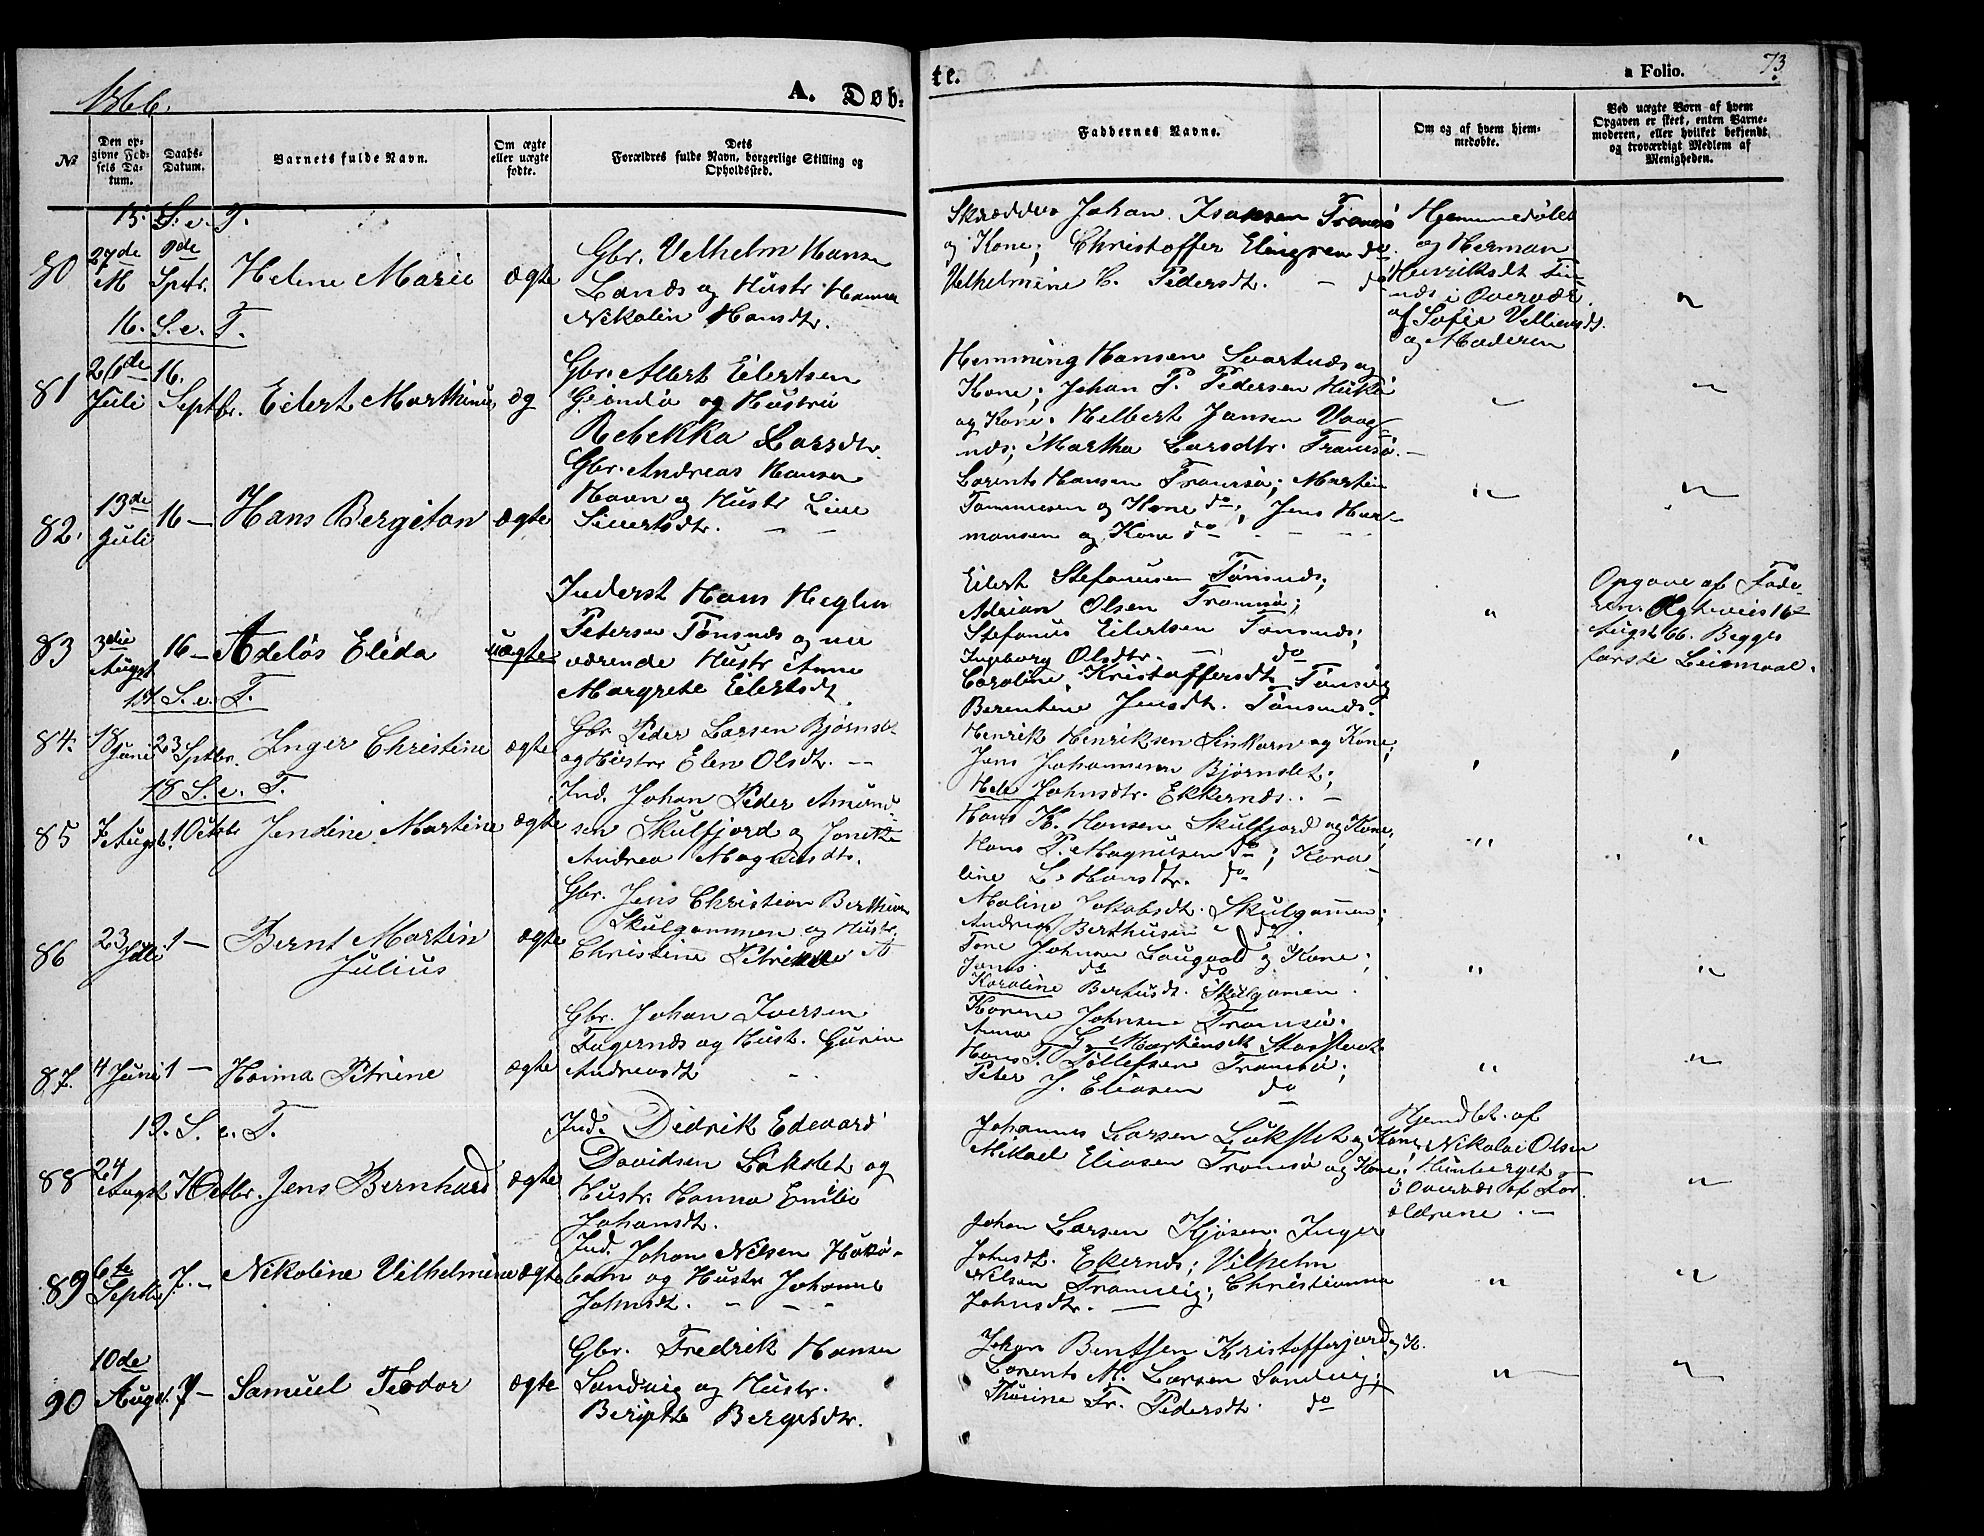 1866.
A. Døb-
te.
a Folio.
73
№
Den op-
givne Fød-
sels Da-
tum.
Daabs-
Datum.
Barnets fulde Navn.
Om ægte
eller uægte
fødte.
Dets
Forældres fulde Navn, borgerlige Stilling og
Opholdssted.
Faddernes Navne.
Om og af hvem hjem-
medøbte.
Ved uægte Børn af hvem
Opgaven er skeet, enten Barne-
moderen, eller hvilket bekjendt
og troværdigt Medlem af
Menigheden.
15. S. e. T.
80
27de
M
9de
Sptbr.
Helene Marie
ægte
Gbr. Velhelm Hansen
Lands og Hustr. Hanna
Nikolin Hansdtr.
Skrædder Johan Isaksen Tromsø
og Kone; Christoffer Elingsen do
Velhelmine C. Pedersdt. - do
Hjemmedøbt
og Herman
Henriksdt
i Overvær
af Sofie
og Moderen
"
16. S. e. T.
81
26de
Juli
16.
Septbr.
Eilert Marthinus
æg
Gbr. Albert Eilertsen
Grønda og Hustru
Rebekka Larsdtr.
Hemming Hansen Svartnæs og
Kone; Johan P. Pedersen
og Kone; Helbert Jansen Vaag-
næs; Martha Larsdtr. Tromsø. -
"
"
82.
13de
Juli
16 -
Hans Bergiton
ægte
Gbr. Andreas Hansen
Havn og Hustr Line
Sivertsdtr. - -
Lorents Hansen Tromsø; Martin
Tommesen og Kone do; Jens Her-
mansen og Kone do
"
"
83
3die
Augst
16 -
Adelös Elida
uægte
Inderst Hans Heglin
Petersen Tønsnæs og nu
værende Hustr Anne
Margrete Eilertsdt.
Eilert Stefanusen Tønsnæs;
Adrian Olsen Tromsø;
Stefanus Eilertsen Tønsnæs;
Ingeborg Olsdtr. - do
Caroline Kristoffersdt Tønsvig
Berentine Jensdt. Tønsnæs.
"
Opgave af Fade-
ren. Ægteviet 16
Augst 66. Begges
første Leiermaal.
17. S. e. T.
84.
18
Juni
23
Sptbr.
Inger Christine
ægte
Gbr Peder Larsen Bjørnsl
og Hustru Elen Olsdt. -
Henrik Henriksen Sinkarn og Kone;
Jens Johannesen Bjørnslet;
Hele Johnsdtr. Ekkernæs. -
"
"
18. S. e. T.
85
7
Augst.
1 Octb
Jendine Martine
ægte
Ind. Johan Peder Amund
sen Skulfjord og
Andrea Magnusdtr.
Hans H. Hansen Skulfjord og Kone;
Hans P. Magnusen do; Karo-
line L. Hansdtr. do
"
"
86
23
Juli
1 -
Bernt Martin
Julius
ægte
Gbr. Jens Christian Berthiusen
Skulgammen og Hustr.
Christine Petrikke A
Maline Jakobsdt. Skulgammen;
Andreas Berthusen do.
Tone Johnsen Laugvold og Kone;
Jonas do do
Karoline Bertusdt. Skulgamen.
"
"
87.
4 Juni
1 -
Hanna Petrine
ægte
Gbr. Johan Iversen
Fagernæs og Hust. Gurin
Andreasdt
Karine Johnsen Tromsø.
Anna G. Martinsdt
Hans T. Tollefsen Tromsø;
Peter J. Eliasen do
"
"
19. S. e. T.
88
24
Augst
7 Octbr.
Jens Bernhard
ægte
Ind. Didrik Edevard
Davidsen Løkslet og
Hustr. Hanna Emilie
Johansdt.
Johannes Larsen Løkslet og Kone;
Mikael Eliasen Tromsø og Kone;
Hjemdbt. af
Nikolai Olsen
i Overvær af For-
ældrene. -
"
89
6te
Septbr
7. -
Nikoline Vilhelmine
ægte
Ind. Johan Nilsen Hakø-
botn og Hustr Johanne
Johnsdt. - - -
Johan Larsen Kjosen; Inger
Johnsdt. Ekernæs; Vilhelm
Nilsen Tromvig; Christianna
Johnsdtr. -
"
"
90
10de
Augst.
7 -
Samuel Teodor
ægte
Gbr. Fredrik Hansen
Sandvig og Hustr.
Beritte Bergetdtr.
Johan Bentsen Kristofferjord og K.
Lorents M. Larsen Sandvig;
Thorine Fr. Pedersdt. do
"
"